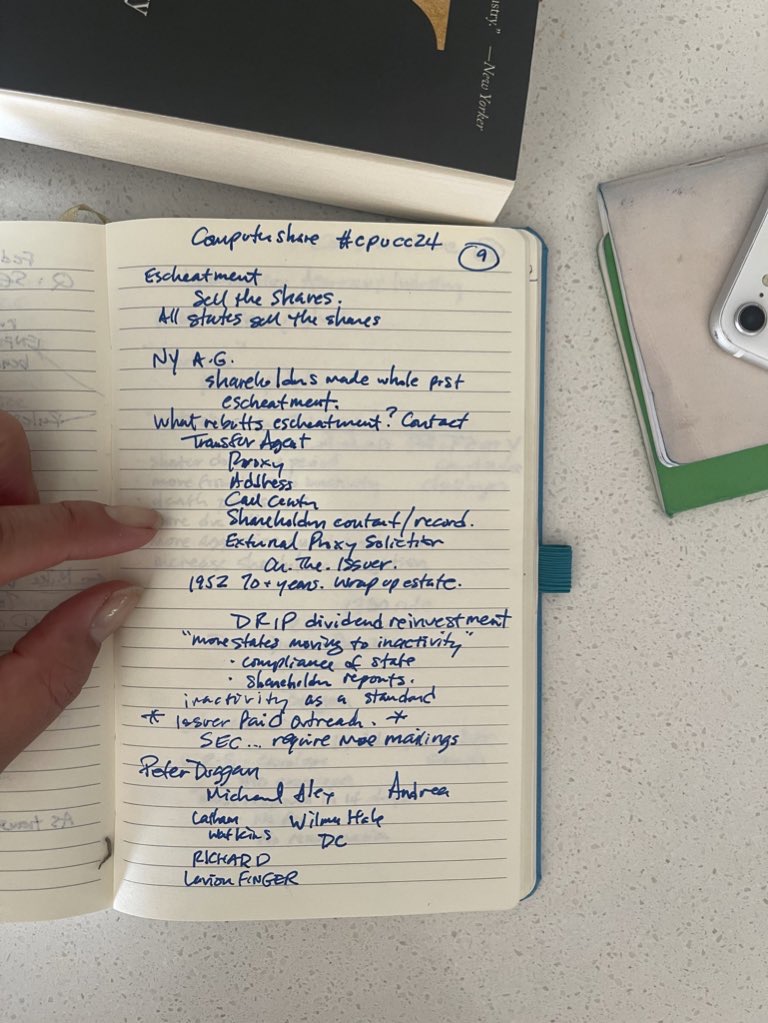 stry." —New Yorker
y
Computershare #cpucc24
9
Escheatment
Sell the shares.
All states sell the shares
NY A.G.
shareholders made whole post
escheatment.
What rebutts escheatment? Contact
Transfer Agent
Proxy
Address
Call Center
Shareholder contact/record.
External Proxy Solicitor
On. The. Issuer.
1952 70+ years. Wrap up estate.
DRIP dividend reinvestment
"more states moving to inactivity"
· compliance of state
· shareholder reports.
inactivity as a standard
* Issuer Paid Outreach. *
SEC... require more mailings
Peter Duggan
Michael Alex Andrea
Latham Wilmer Hale
Watkins DC
RICHARD
FINGER